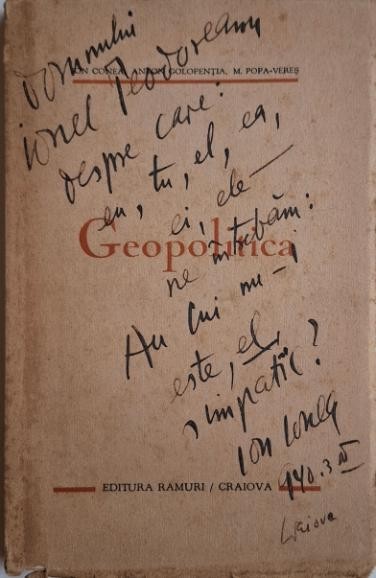 Domnului
Ionel Teodoreanu
ION CONEA, ANTON GOLOPENȚIA, M. POPA-VEREȘ
despre care:
eu, tu, el, ea,
ei, ele —
Geopolitica
ne întrebăm:
Au cui nu-i
este, el,
simpatic?
Ion Conea
940.3.IV
EDITURA RAMURI / CRAIOVA
Craiova